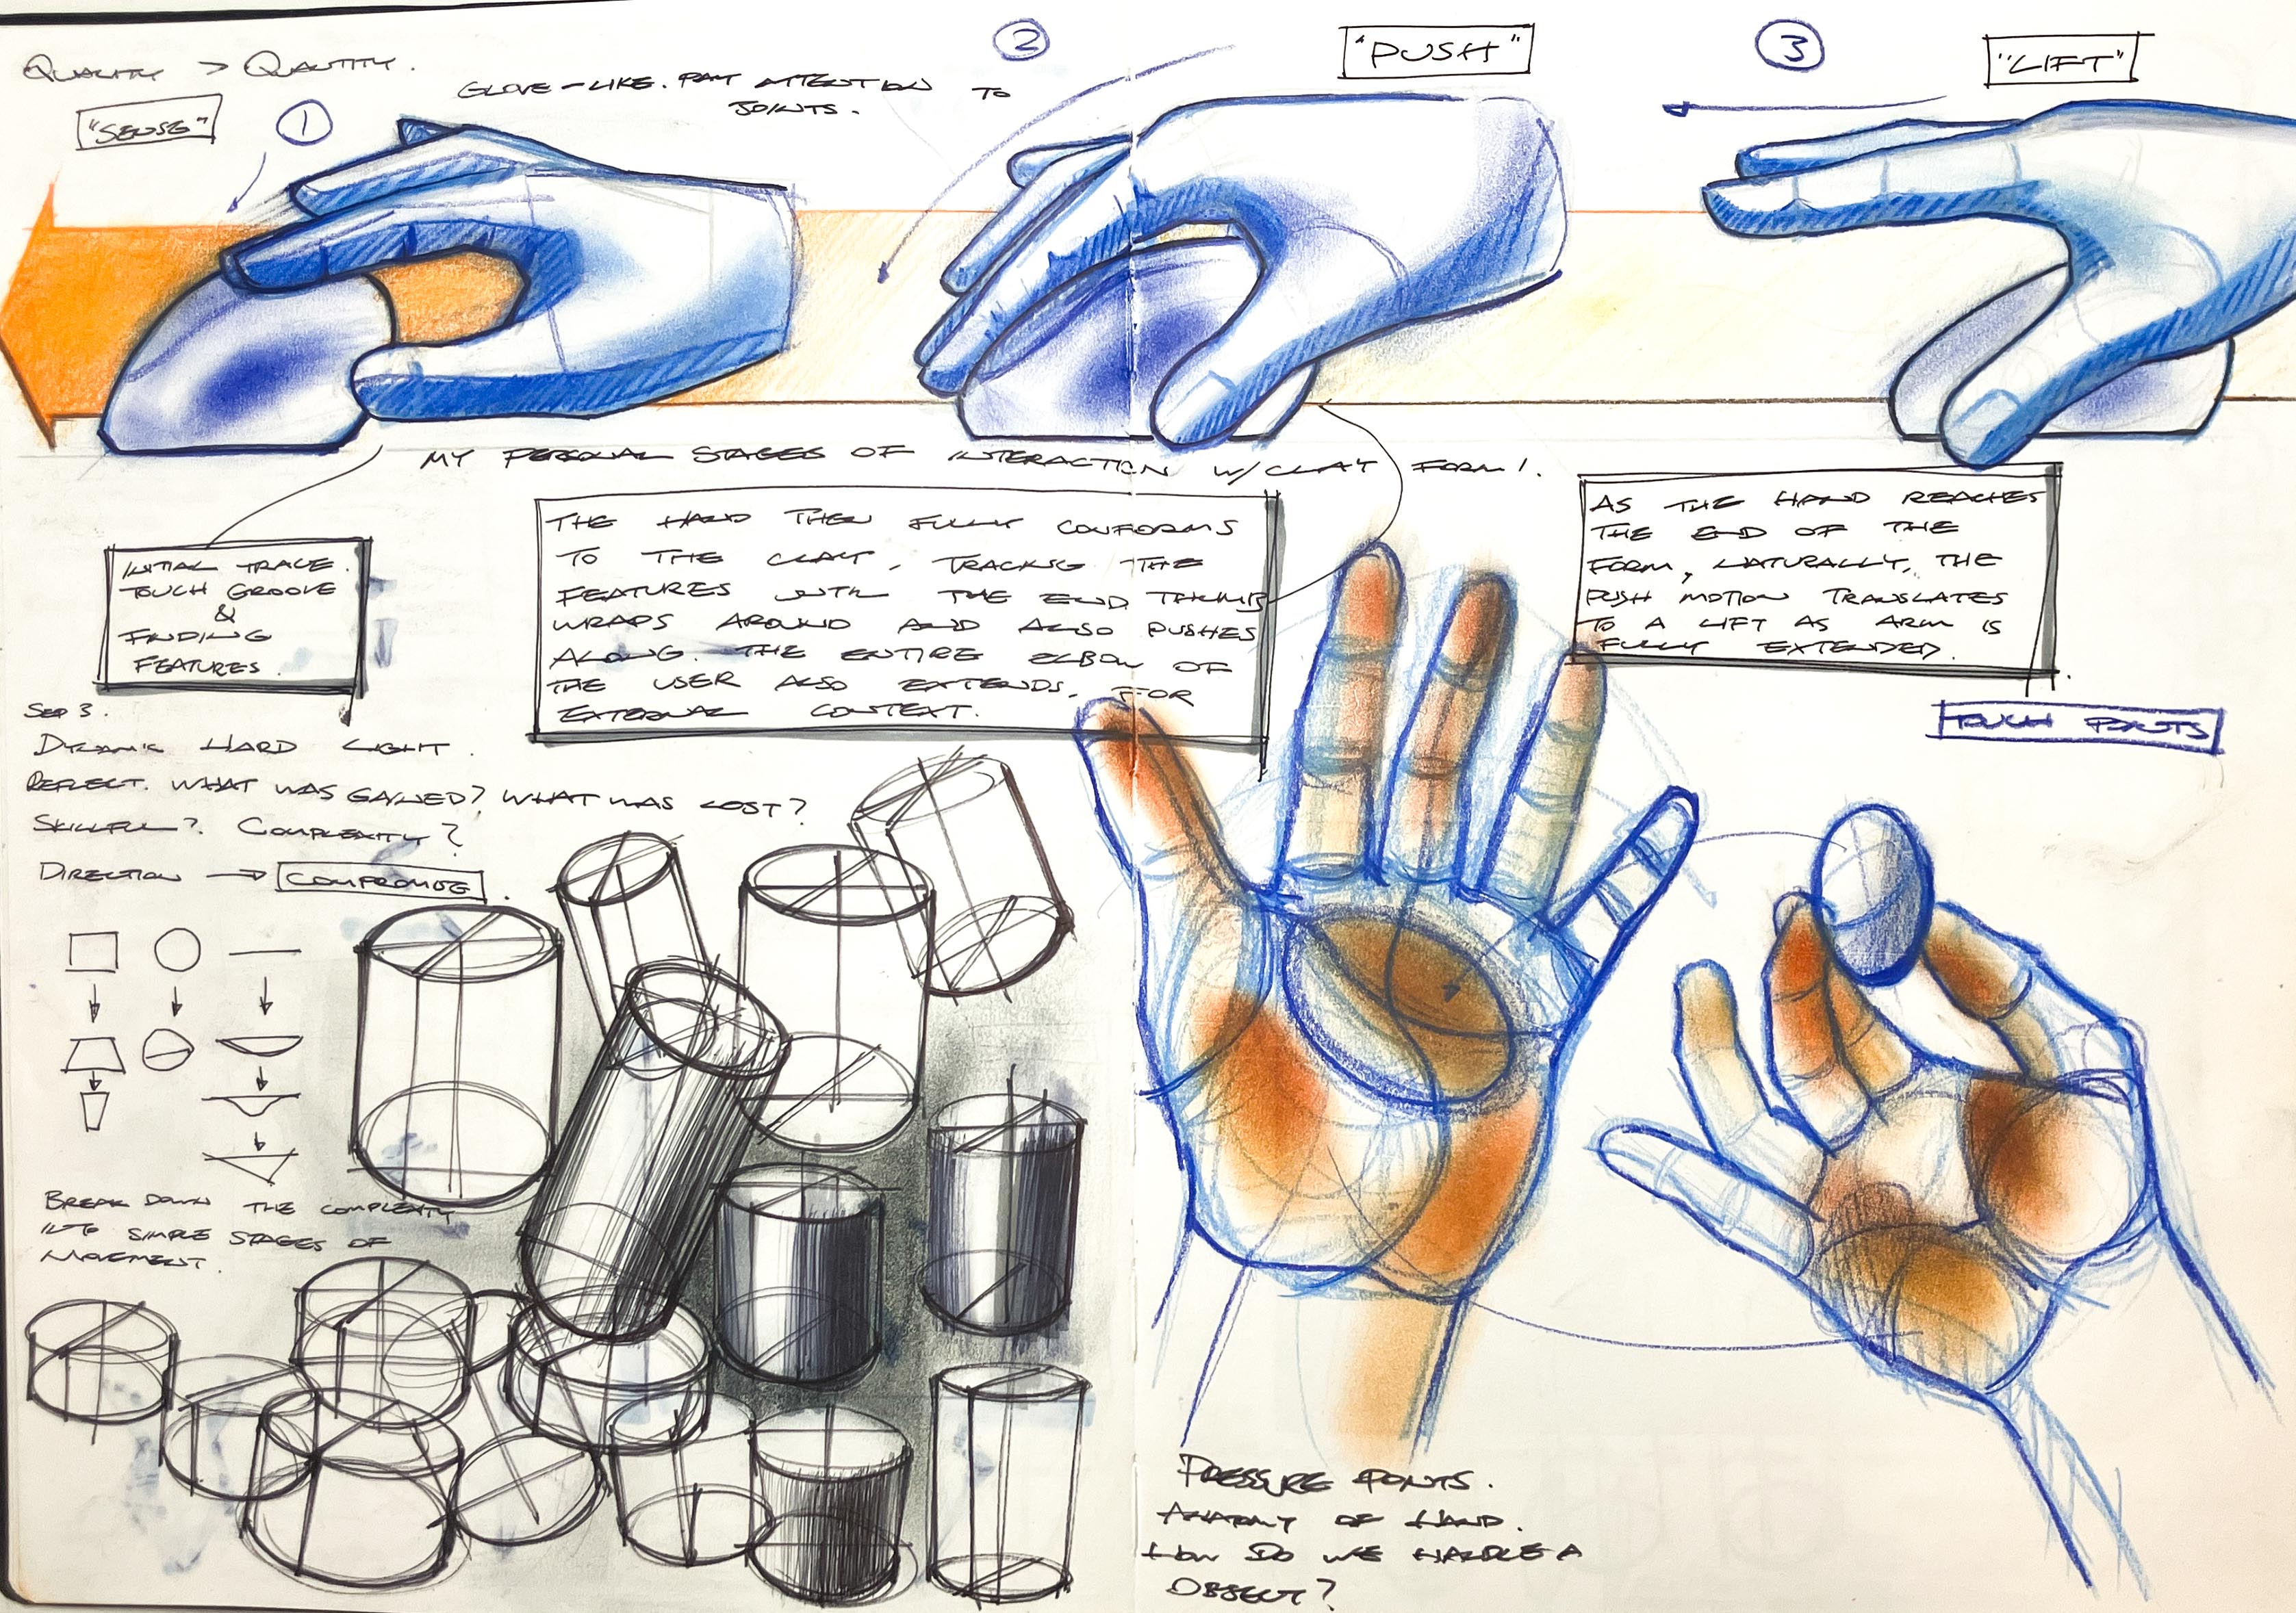 QUALITY > QUANTITY.
"SENSE"
1
GLOVE-LIKE. PAY ATTENTION TO
JOINTS.
2
"PUSH"
3
"LIFT"
MY PERSONAL STAGES OF INTERACTION W/CLAY FORM!
INITIAL TRACE.
TOUCH GROOVE
&
FINDING
FEATURES.
THE HAND THEN FULLY CONFORMS
TO THE CLAY, TRACKING THE
FEATURES WITH THE END. THUMB
WRAPS AROUND AND ALSO PUSHES
ALONG. THE ENTIRE ELBOW OF
THE USER ALSO EXTENDS, FOR
EXTERNAL CONTEXT.
AS THE HAND REACHES
THE END OF THE
FORM, NATURALLY, THE
PUSH MOTION TRANSLATES
TO A LIFT AS ARM IS
FULLY EXTENDED.
TOUCH POINTS
SEP 3.
DYNAMIC HARD LIGHT.
REFLECT. WHAT WAS GAINED? WHAT WAS LOST?
SKILLFUL? COMPLEXITY?
DIRECTION → COMPROMISE.
BREAK DOWN THE COMPLEXITY
INTO SIMPLE STAGES OF
MOVEMENT.
PRESSURE POINTS.
ANATOMY OF HAND.
HOW DO WE HANDLE A
OBJECT?